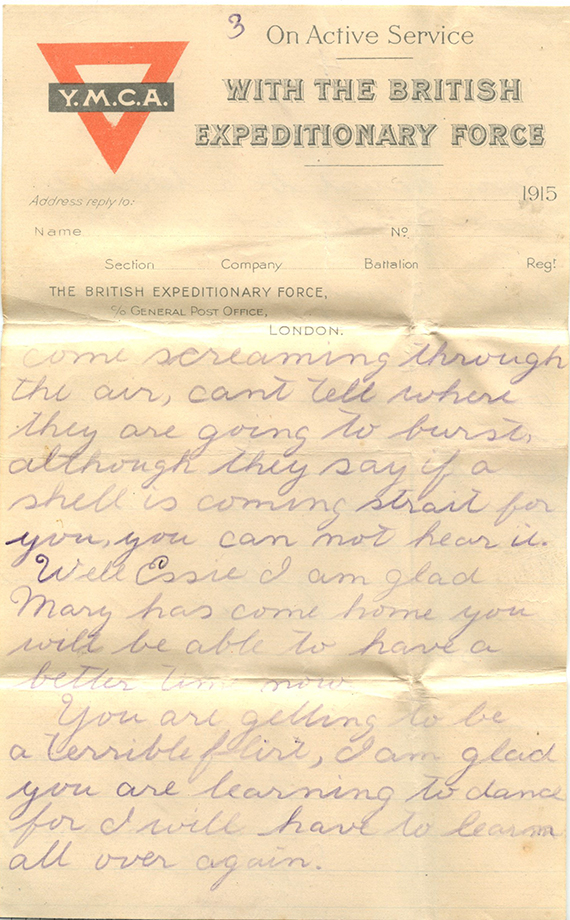 3
On Active Service
Y.M.C.A.
WITH THE BRITISH
EXPEDITIONARY FORCE
1915
Address reply to:
Name Nº
Section Company Battalion Regt
THE BRITISH EXPEDITIONARY FORCE,
c/o GENERAL POST OFFICE,
LONDON.
come screaming through
the air, cant tell where
they are going to burst,
although they say if a
shell is coming strait for
you, you can not hear it.
Well Essie I am glad
Mary has come home you
will be able to have a
better time now
You are getting to be
a terrible flirt, I am glad
you are learning to dance
for I will have to learn
all over again.